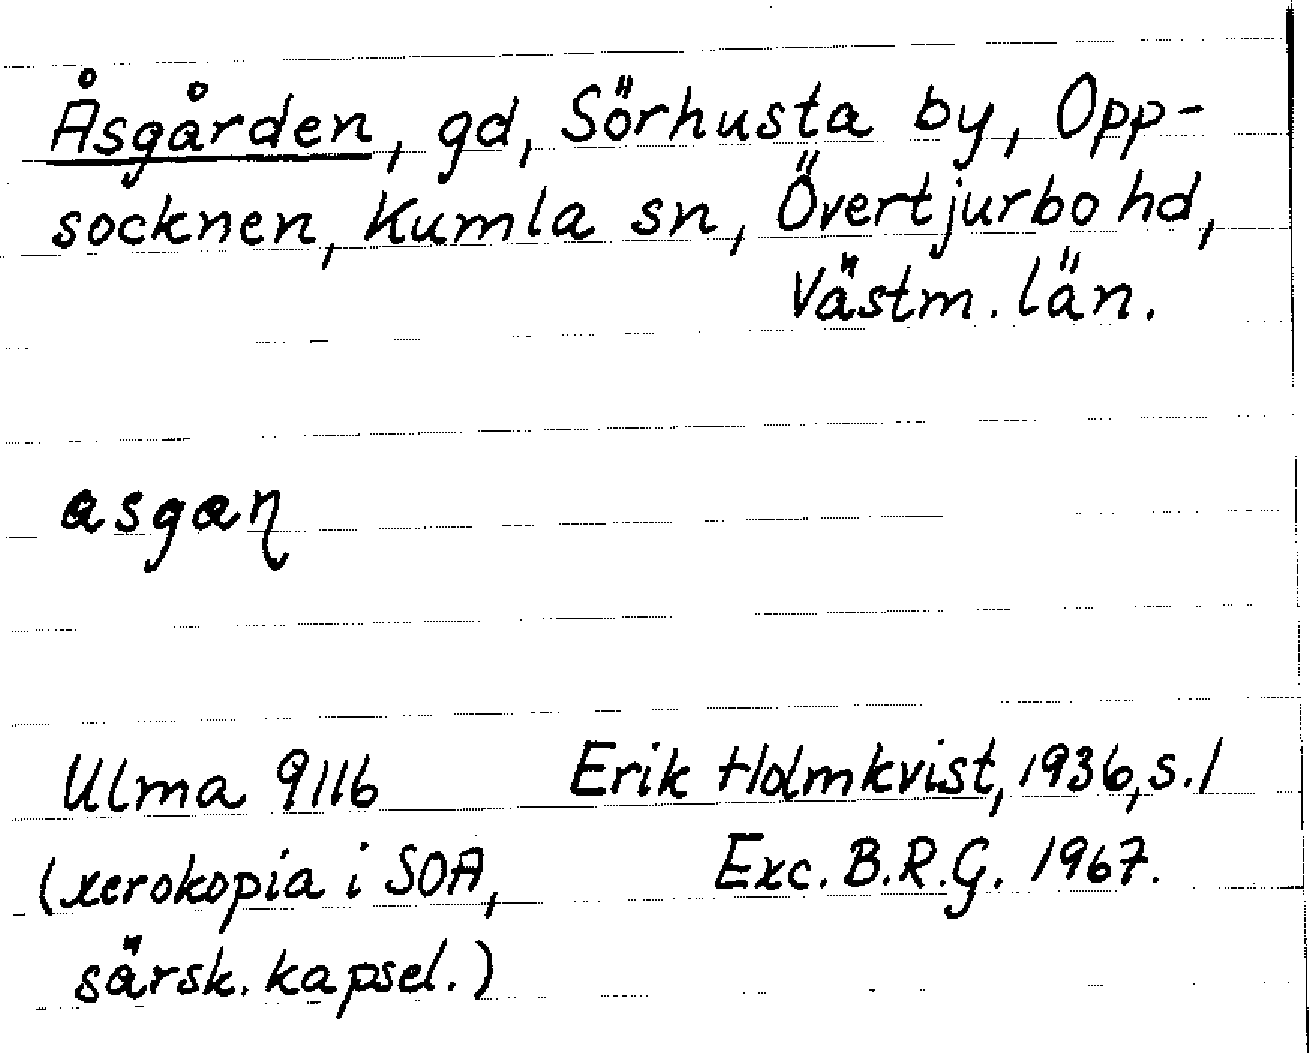 Åsgården, gd, Sörhusta by, Opp-
socknen, Kumla sn, Övertjurbo hd,
Västm. län.
asgaɳ
Ulma 9116 Erik Holmkvist, 1936, s. 1
(xerokopia i SOA, Exc. B.R.G. 1967.
särsk. kapsel.)